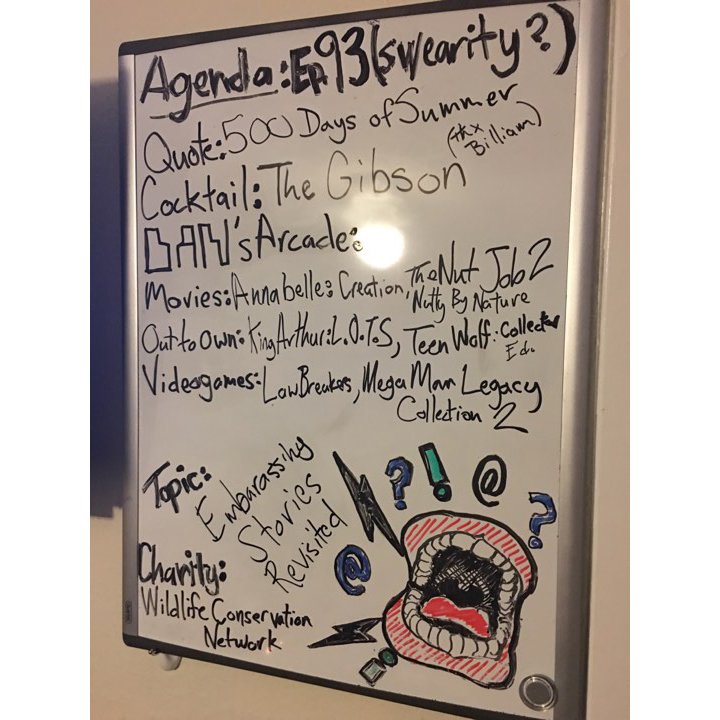 Agenda: Ep. 93 (swearity?)
Quote: 500 Days of Summer
(thx Billiam)
Cocktail: The Gibson
DAN's Arcade:
Movies: Annabelle: Creation, The Nut Job 2
Nutty By Nature
Out to Own: King Arthur: L.O.T.S, Teen Wolf: Collector
Ed.
Videogames: LawBreakers, Mega Man Legacy
Collection 2
Topic:
Embarassing
Stories
Revisited
? ! @ ?
@
Charity:
Wildlife Conservation
Network
!